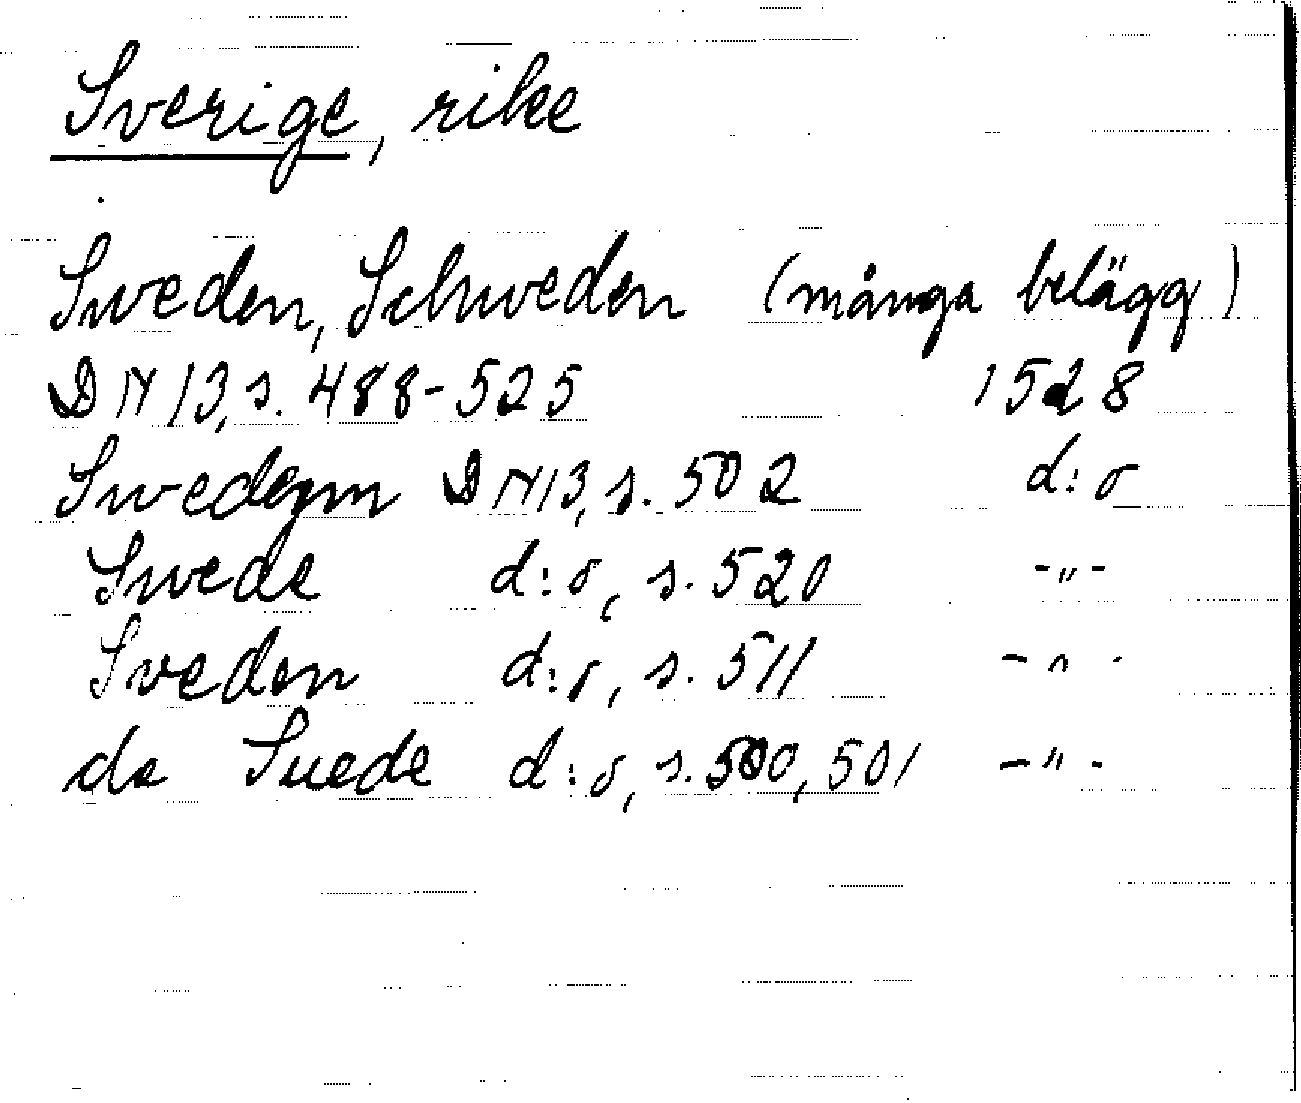 Sverige, rike
Sweden, Schweden (många belägg)
DN 13, s. 488-525 1528
Swedenn DN 13, s. 502 d:o
Swede d:o, s. 520 -"-
Sveden d:o, s. 511 -"-
de Suede d:o, s. 500, 501 -"-